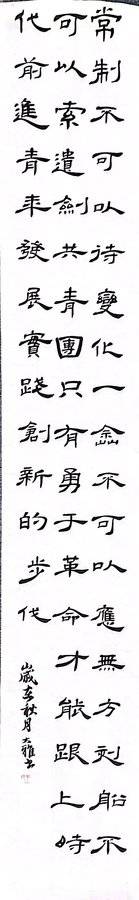 常制不可以待變化一途不可以應無方刻船不
可以索遺劍共青團只有勇于革命才能跟上時
代前進青年發展實踐創新的步伐
歲在秋月大雅书